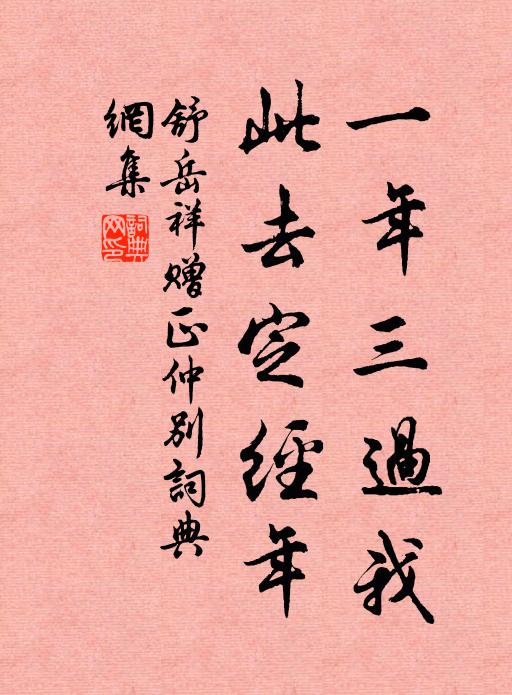 一年三過我
此去定經年
舒岳祥赠正仲别詞典
網集
詞典網印